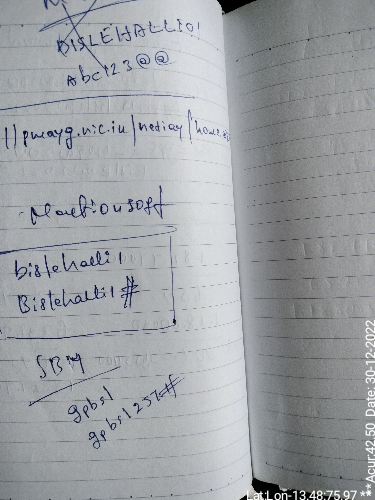 BISLEHALLI01
Abc123@@
//pmayg.nic.in/netiay/home.
bislehalli1
Bislehalli1#
SBM
gpbsl
Lat:Lon-13.48:75.97 **Acur:42.50 Date: 30-12-2022